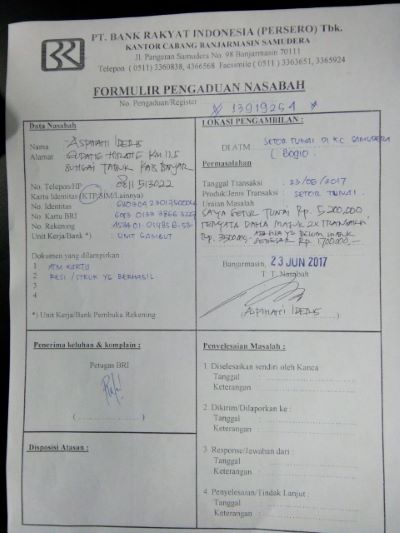 PT. BANK RAKYAT INDONESIA (PERSERO) Tbk.
KANTOR CABANG BANJARMASIN SAMUDERA
Jl. Pangeran Samudera No. 98 Banjarmasin 70111
Telepon (0511) 3360838, 4366568 Facsmile (0511) 3363651, 3365924
BRI
FORMULIR PENGADUAN NASABAH
No. Pengaduan/Register 13919254
Data Nasabah
Nama
Alamat KM 11,5
SUNGAI TABUK KAB. BANJAR
No. Telepon/HP 0811 513022
Kartu Identitas (KTP/SIM/Lainnya)
No. Identitas
No. Kartu BRI 6013 0133 3866
No. Rekening
Unit Kerja/Bank *) : UNIT GAMBUT
Dokumen yang dilampirkan :
1 ATM KARTU
2 RESI / STRUK YG BERHASIL
3
4
5
*) Unit Kerja/Bank Pembuka Rekening
LOKASI PENGAMBILAN :
DI ATM SETOR TUNAI DI KC SAMUDERA
Permasalahan
Tanggal Transaksi : 23/06/2017
Produk/Jenis Transaksi : SETOR TUNAI
Uraian Masalah
SAYA SETOR TUNAI Rp. 5.200.000,
TERNYATA DANA MASUK 2X TRANSAKSI
Rp. 3500.000, ADA YG BELUM MASUK
SEBESAR Rp. 1.700.000,-
Banjarmasin, 23 JUN 2017
T. T. Nasabah
Penerima keluhan & komplain :
Petugas BRI
(..................)
Disposisi Atasan :
Penyelesaian Masalah :
1. Diselesaikan sendiri oleh Kanca
Tanggal :
Keterangan :
2. Dikirim/Dilaporkan ke :
Tanggal :
Keterangan :
3. Response/Jawaban dari :
Tanggal :
Keterangan :
4. Penyelesaian/Tindak Lanjut :
Tanggal :
Keterangan :